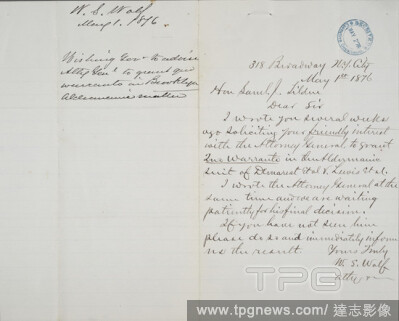 W. S. Wolf
May 1. 1876.
Wishing Gov. to advise
Atty Genl to grant quo
warranto in Brooklyn
Aldermanic matter
318 Broadway N.Y. City
May 1st 1876
Hon Saml. J. Tilden
Dear Sir
I wrote you several weeks
ago soliciting your friendly interest
with the Attorney General to grant
Quo Warranto in the Aldermanic
suit of Demarest et al v. Lewis et al.
I wrote the Attorney General at the
same time and we are waiting
patiently for his final decision.
If you have not seen him
please do so and immediately inform
me the result. Yours Truly
W. S. Wolf
Atty
TPG
www.tpgnews.com / 達志影像